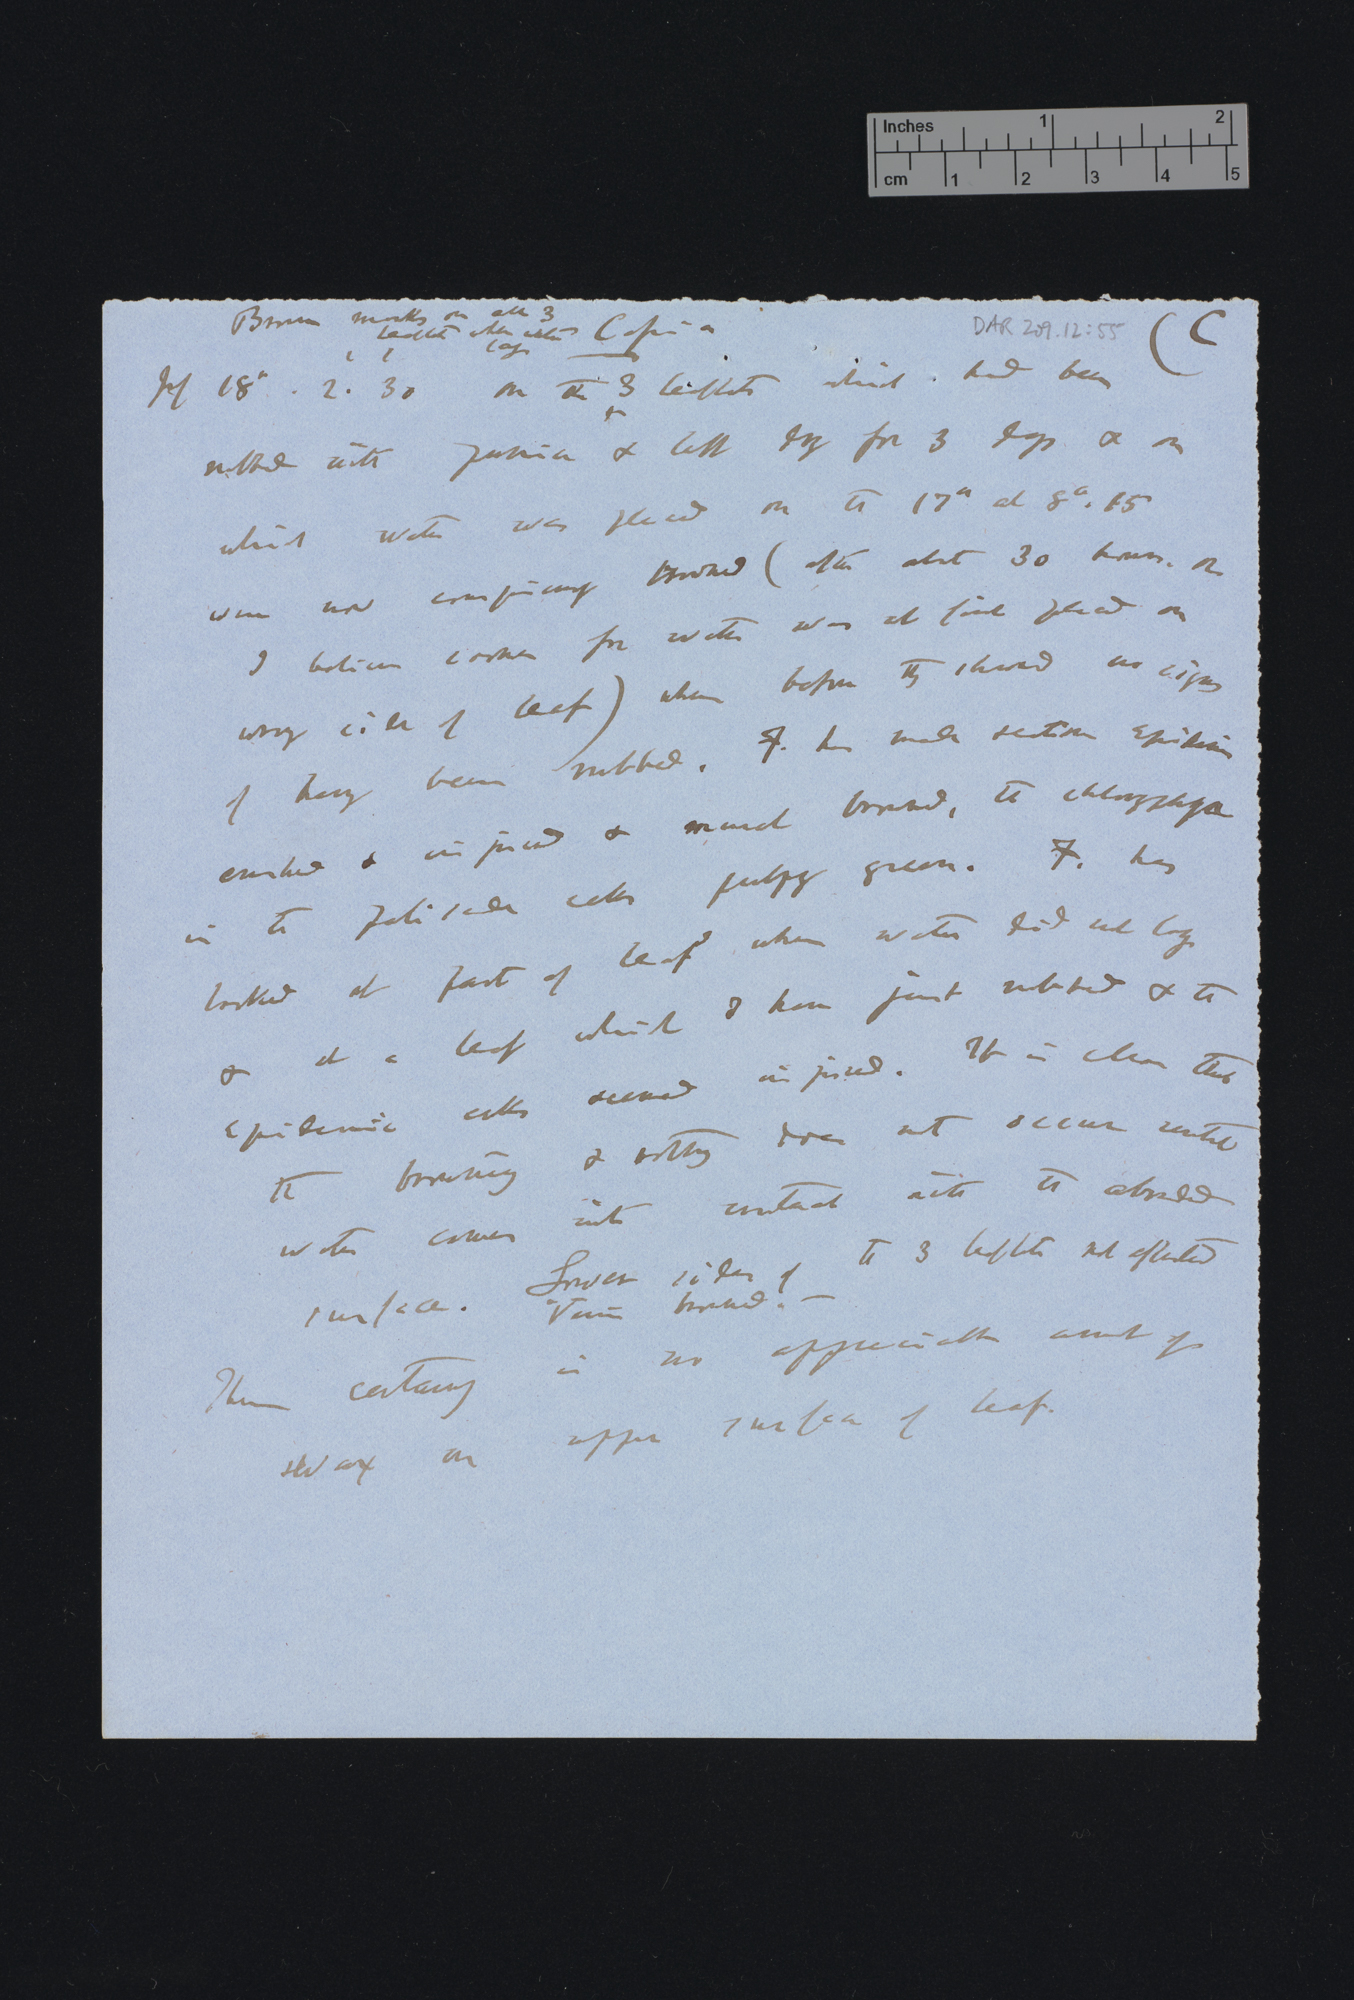 Inches 1 2
cm 1 2 3 4 5
DAR 209.12:55
(C
Brown marks on all 3
leaflets where water
lays
Cassia
18th. 2. 30 on the 3 leaflets which had been
rubbed with & left dry for 3 days & on
which water was placed on the 17th at 8°. 15
were now conspicuously browned (after about 30 hours. or
I believe sooner for water was at first placed on
wrong side of leaf) when before they showed no signs
of having been rubbed. F. has made section Epidermis
crushed & injured & much browned, the chlorophyll
in the palisade cells pulpy green. F. has
looked at part of leaf where water did not lay
& at a leaf which I have just rubbed & the
Epidermic cells seemed injured. It is clear that
the browning & rotting does not occur until
water comes into contact with the abraded
surface. Lower sides of the 3 leaflets not affected
Veins browned. —
There certainly is no appreciable amount of
wax on upper surface of leaf.